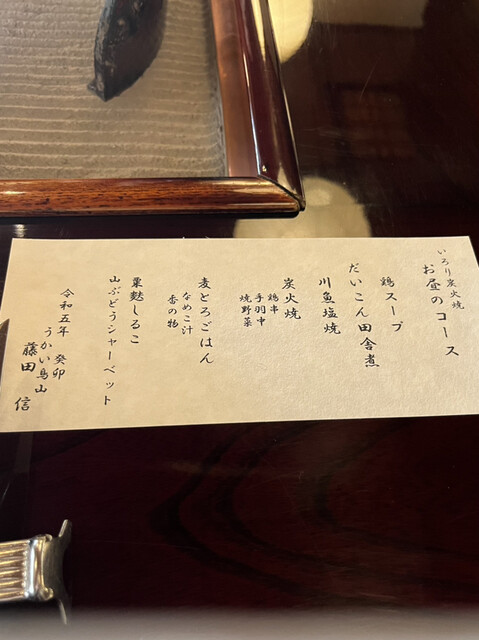 いろり炭火焼
お昼のコース
鶏スープ
だいこん田舎煮
川魚塩焼
炭火焼
鶏串
手羽中
焼野菜
麦とろごはん
なめこ汁
香の物
粟麩しるこ
山ぶどうシャーベット
令和五年 癸卯
うかい鳥山
藤田 信